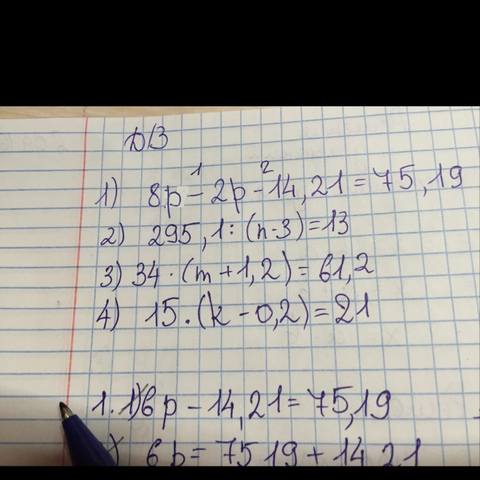 Д/З
1 2
1) 8p - 2p - 14,21 = 75,19
2) 295,1 : (n-3) = 13
3) 34 · (m + 1,2) = 61,2
4) 15 · (k - 0,2) = 21
1. 1) 6p - 14,21 = 75,19
6p = 75,19 + 14,21